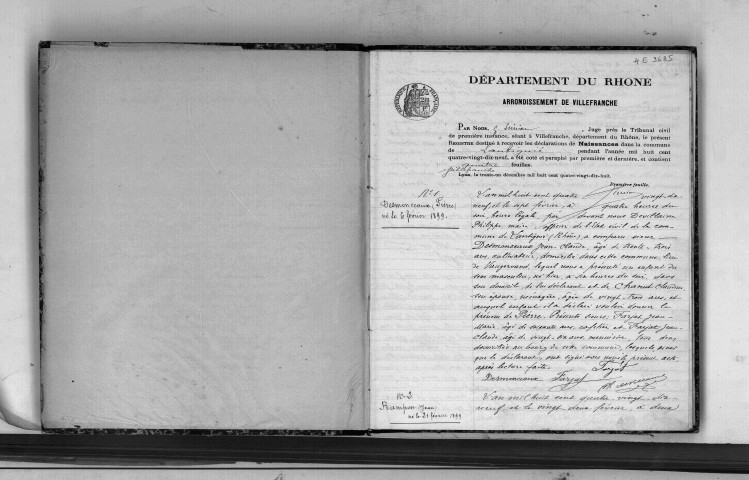 4 E 3685
DÉPARTEMENT DU RHONE
ARRONDISSEMENT DE VILLEFRANCHE
PAR NOUS, Juge près le Tribunal civil
de première instance, séant à Villefranche, département du Rhône, le présent
REGISTRE destiné à recevoir les déclarations de Naissances dans la commune
de Lantignié pendant l'année mil huit cent
quatre-vingt-dix-neuf, a été coté et paraphé par première et dernière, et contient
feuilles.
Lyon, le trente-un décembre mil huit cent quatre-vingt-dix-huit.
Première feuille.
N° 1
Desmonceaux, Pierre
né le 6 février 1899.
L'an mil huit cent quatre vingt-dix
neuf et le sept février, à quatre heures du
soir heure légale, par devant nous
Philippe maire, officier de l'état civil de la com-
mune de Lantignié (Rhône) a comparu sieur
Desmonceaux Jean Claude, âgé de trente-trois
ans, cultivateur, domicilié dans cette commune, lieu
de lequel nous a présenté un enfant du
sexe masculin, né hier, à six heures du soir, dans
son domicile, de lui déclarant et de Chanut Claudine
son épouse, ménagère, âgée de vingt trois ans, et
auquel enfant il a déclaré vouloir donner le
prénom de Pierre. Présents sieurs Farjat Jean-
Marie, âgé de soixante ans, cafetier et Farjat Jean-
Claude, âgé de vingt- ans, menuisier, tous deux
domiciliés au bourg de cette commune, lesquels ainsi
que le déclarant, ont signé avec nous le présent acte
après lecture faite. Farjat
Desmonceaux Farjat
N° 2
Rampon, Jean
né le 21 février 1899
L'an mil huit cent quatre vingt-dix-
neuf et le vingt deux février, à deux